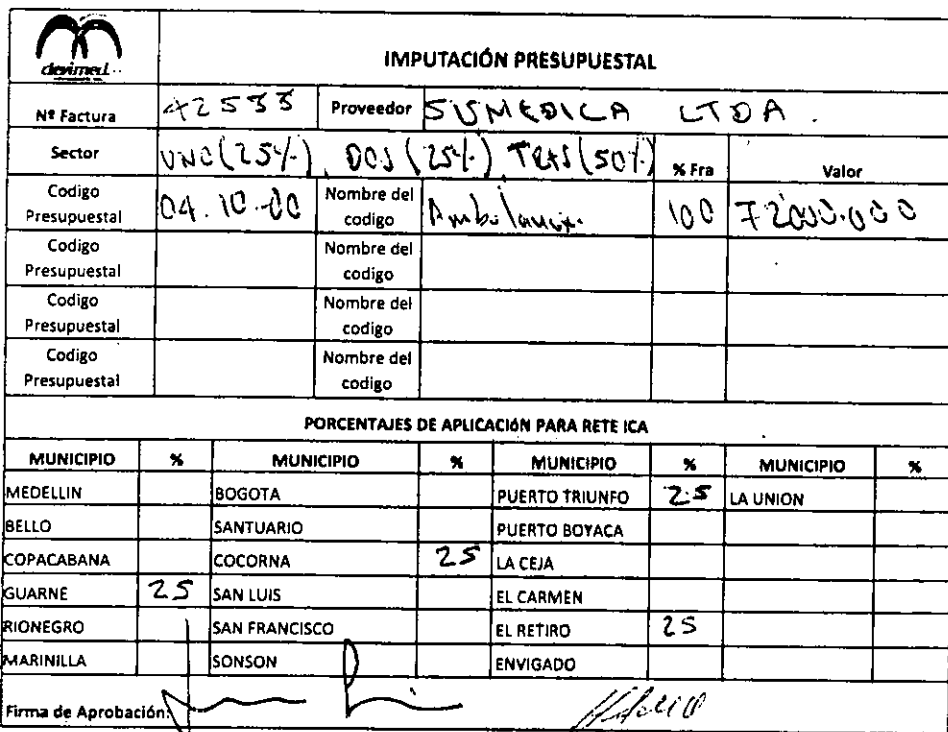 devimed
IMPUTACIÓN PRESUPUESTAL
Nº Factura 42533 Proveedor SUMEDICA LTDA.
Sector UNO(25%), DOS (25%) TRES(50%) % Fra Valor
Codigo Presupuestal 04.10.00 Nombre del codigo Ambulancia 100 72000.000
Codigo Presupuestal Nombre del codigo
Codigo Presupuestal Nombre del codigo
Codigo Presupuestal Nombre del codigo
PORCENTAJES DE APLICACIÓN PARA RETE ICA
MUNICIPIO % MUNICIPIO % MUNICIPIO % MUNICIPIO %
MEDELLIN BOGOTA PUERTO TRIUNFO 25 LA UNION
BELLO SANTUARIO PUERTO BOYACA
COPACABANA COCORNA 25 LA CEJA
GUARNE 25 SAN LUIS EL CARMEN
RIONEGRO SAN FRANCISCO EL RETIRO 25
MARINILLA SONSON ENVIGADO
Firma de Aprobación: